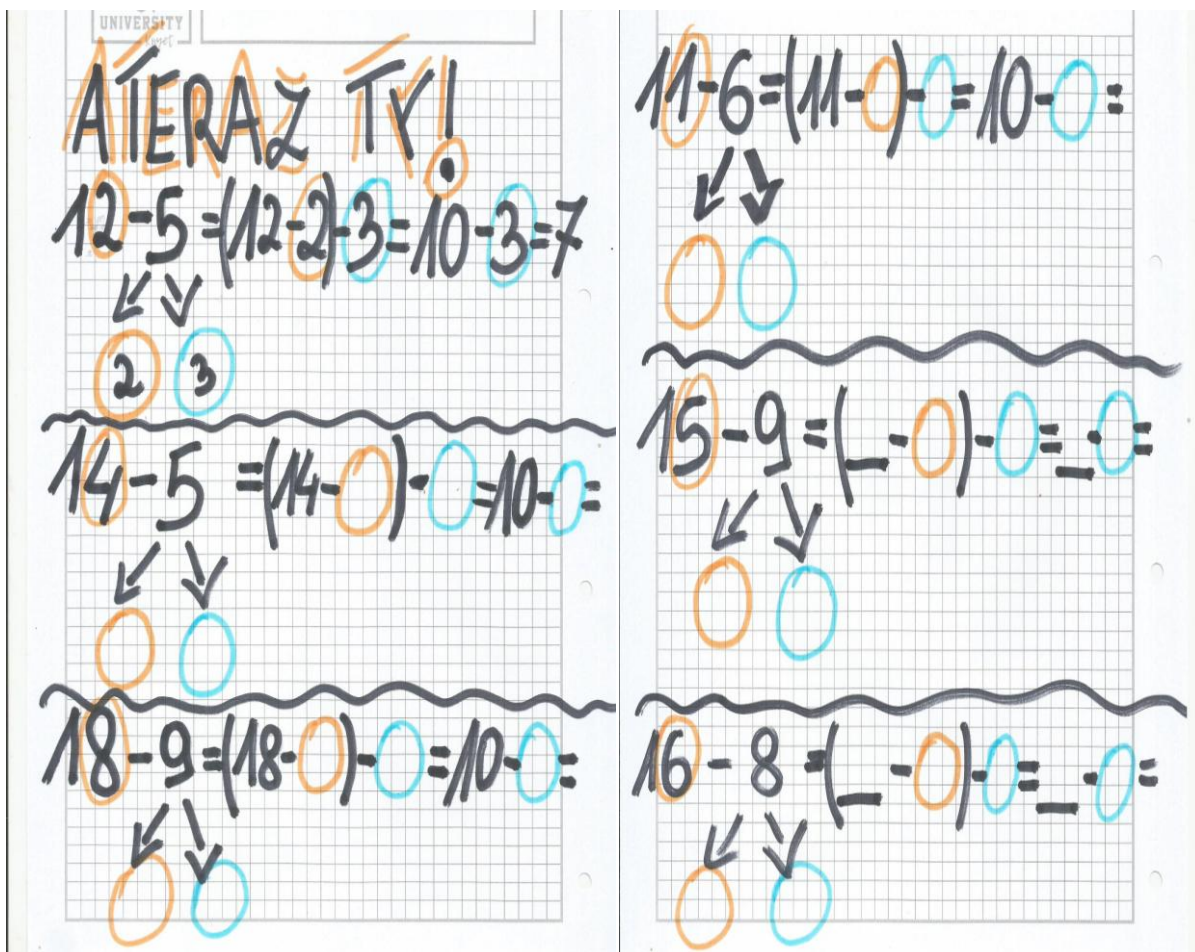 UNIVERSITY
A TERAZ TY!
12-5=(12-2)-3=10-3=7
2 3
14-5=(14- )- =10- =
18-9=(18- )- =10- =
11-6=(11- )- =10- =
15-9=(_- )- =_- =
16-8=(_- )- =_- =